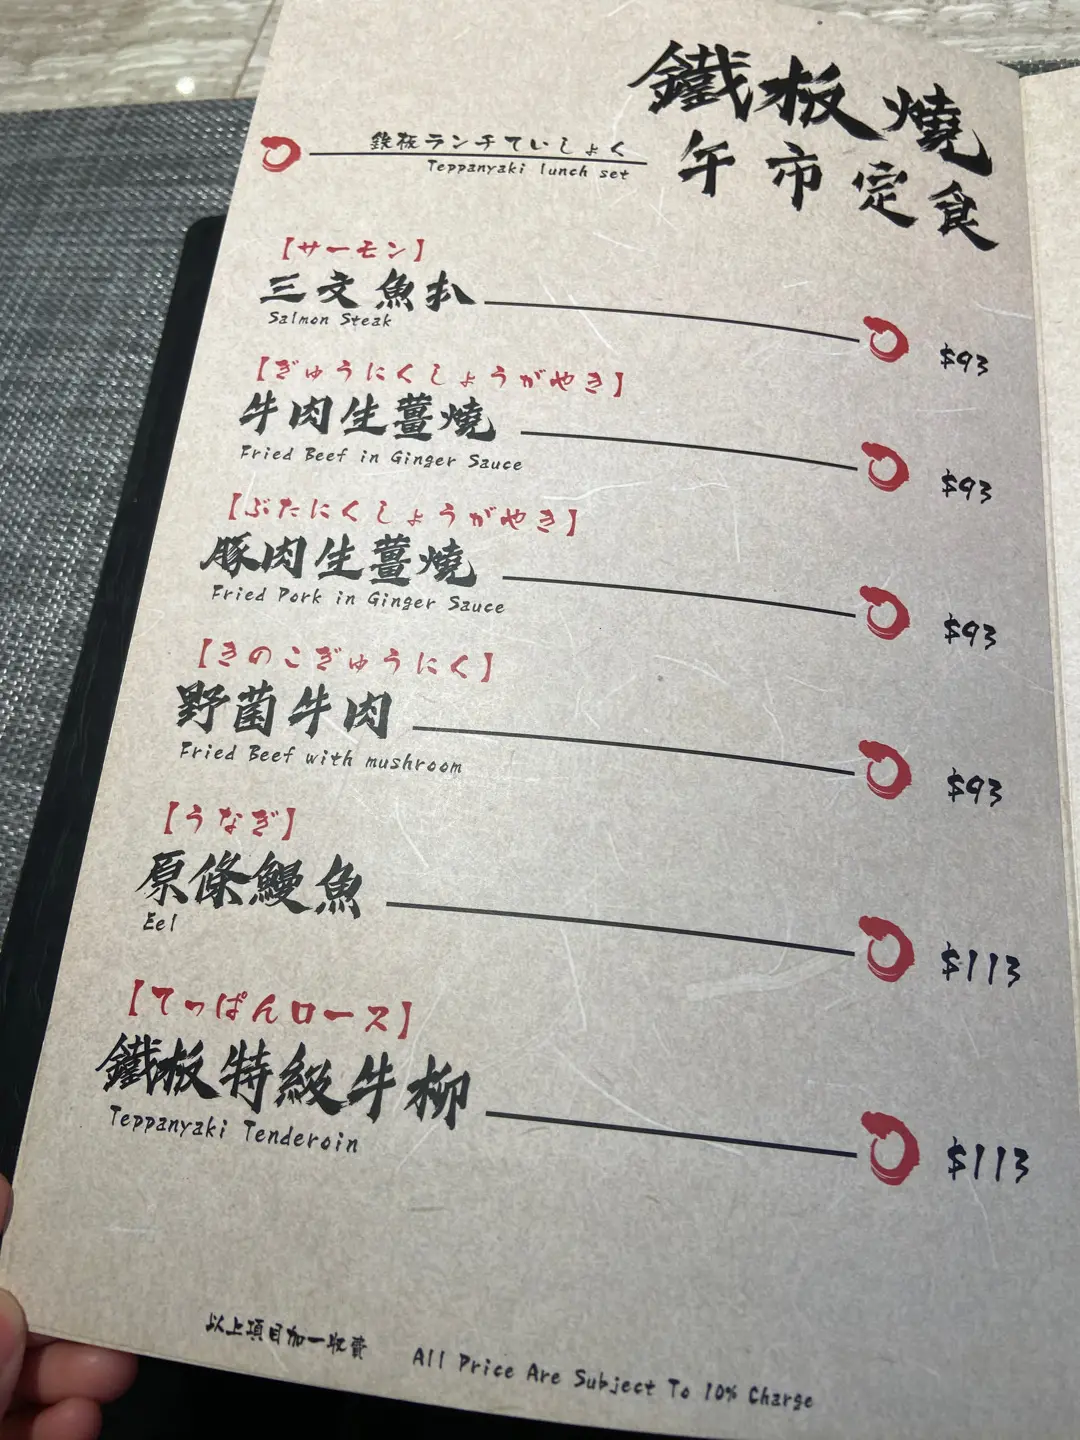 鐵板燒
午市定食
鉄板ランチていしょく
Teppanyaki lunch set
【サーモン】
三文魚扒
$93
Salmon Steak
【ぎゅうにくしょうがやき】
牛肉生薑燒
$93
Fried Beef in Ginger Sauce
【ぶたにくしょうがやき】
豚肉生薑燒
$93
Fried Pork in Ginger Sauce
【きのこぎゅうにく】
野菌牛肉
$93
Fried Beef with mushroom
【うなぎ】
原條鰻魚
$113
Eel
【てっぱんロース】
鐵板特級牛柳
$113
Teppanyaki Tenderoin
以上項目加一收費
All Price Are Subject To 10% Charge